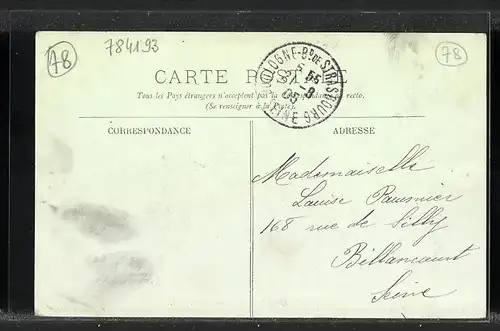 78
784193
78
BOULOGNE-Bd DE STRASBOURG
SEINE
CARTE POSTALE
Tous les Pays étrangers n'acceptent pas la Correspondance au recto,
(Se renseigner à la Poste).
CORRESPONDANCE
ADRESSE
Mademoiselle
Louise Paumier
168 rue de Silly
Billancourt
Seine